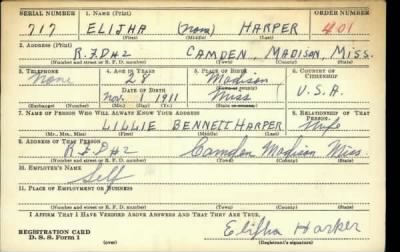 SERIAL NUMBER 1. NAME (Print) ORDER NUMBER
717 ELIJHA (none) HARPER 401
(First) (Middle) (Last)
2. ADDRESS (Print)
R.F.D #2 CAMDEN, MADISON, MISS.
(Number and street or R. F. D. number) (Town) (County) (State)
3. TELEPHONE 4. AGE IN YEARS 5. PLACE OF BIRTH 6. COUNTRY OF CITIZENSHIP
None 28 Madison
DATE OF BIRTH (Town or county)
Nov. 9 1911 Miss U.S.A.
(Exchange) (Number) (Mo.) (Day) (Yr.) (State or country)
7. NAME OF PERSON WHO WILL ALWAYS KNOW YOUR ADDRESS 8. RELATIONSHIP OF THAT PERSON
LILLIE BENNETT HARPER Wife
(Mr., Mrs., Miss) (First) (Middle) (Last)
9. ADDRESS OF THAT PERSON
R.F.D #2 Camden Madison Miss
(Number and street or R. F. D. number) (Town) (County) (State)
10. EMPLOYER'S NAME
Self
11. PLACE OF EMPLOYMENT OR BUSINESS
(Number and street or R. F. D. number) (Town) (County) (State)
I AFFIRM THAT I HAVE VERIFIED ABOVE ANSWERS AND THAT THEY ARE TRUE.
REGISTRATION CARD Elijha Harper
D. S. S. Form 1 (over) (Registrant's signature)